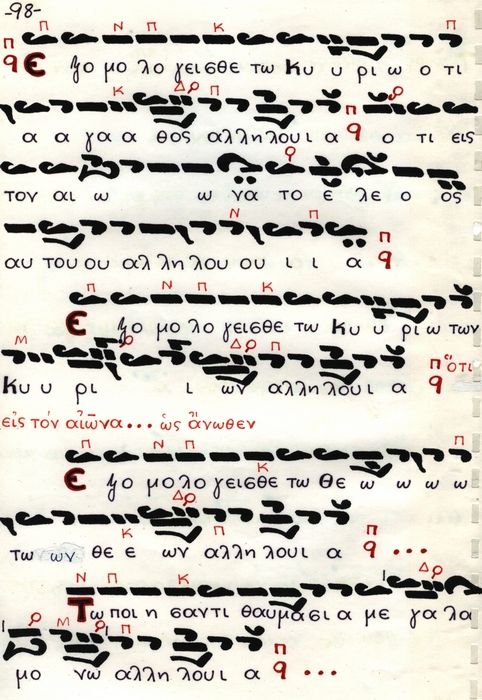 -98-
Π Ν Π Κ Π
Π
q Ε ξο μο λο γεισθε τω Κυ υ ρι ω ο τι
Κ Δ Π
α α γα α θος αλληλουι α Π q ο τι εις
τον αι ω ω να το ε λε ο ος
Ν Π
αυ του ου αλ λη λου ου ι ι α Π q
Π Ν Π Κ
Ε ξο μο λο γεισθε τω Κυ υ ρι ω των
Μ Δ Π
Κυ υ ρι ι ων αλληλουι α Π q ὅτι
εἰς τόν αἰῶνα... ὡς ἄνωθεν
Π Ν Π Κ Π
Ε ξο μο λο γεισθε τω Θε ω ω ω ω
Δ
Κ Π
τω ων θε ε ων αλλη λουι α Π q ...
Ν Π Κ Δ
Τω ποι η σαντι θαυμασι α με γα λα
Μ Π
μο νω αλλη λουι α Π q ...